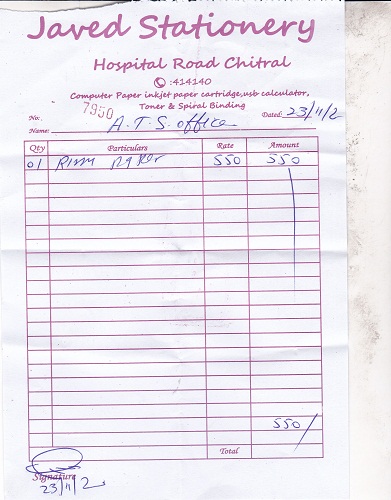 Javed Stationery
Hospital Road Chitral
:414140
Computer Paper inkjet paper cartridge,usb calculator,
Toner & Spiral Binding
No: 7950 Dated: 23/11/2
Name: A.T.S. office
Qty Particulars Rate Amount
01 Rim paper 550 550
550/
Total
Signature
23/11/2